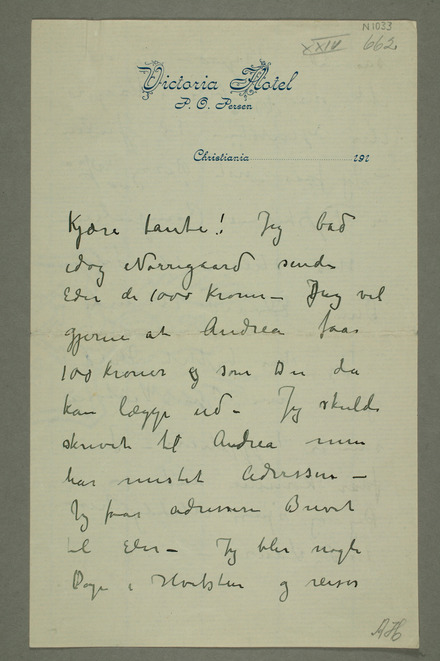 N1033
XXIV 662
Victoria Hotel
P. O. Persen
Christiania 191
Kjære Tante! Jeg bad
idag Nørregaard sende
Eder de 1000 Kroner – Jeg vil
gjerne at Andrea faar
100 Kroner og som Du da
kan lægge ud – Jeg skulde
skrevet til Andrea men
har mistet Adressen –
Jeg faar adressere Brevet
til Eder – Jeg blir nogle
Dage i Hvitsten og reiser